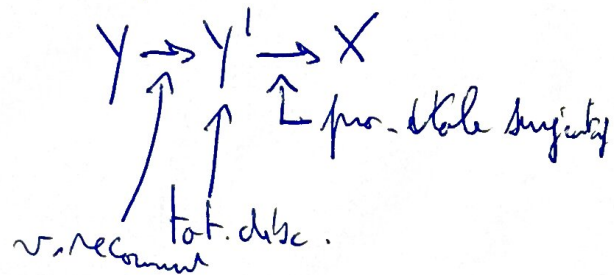 Y → Y' → X
pro-étale surjectif
tot. disc.
v-recouvrement